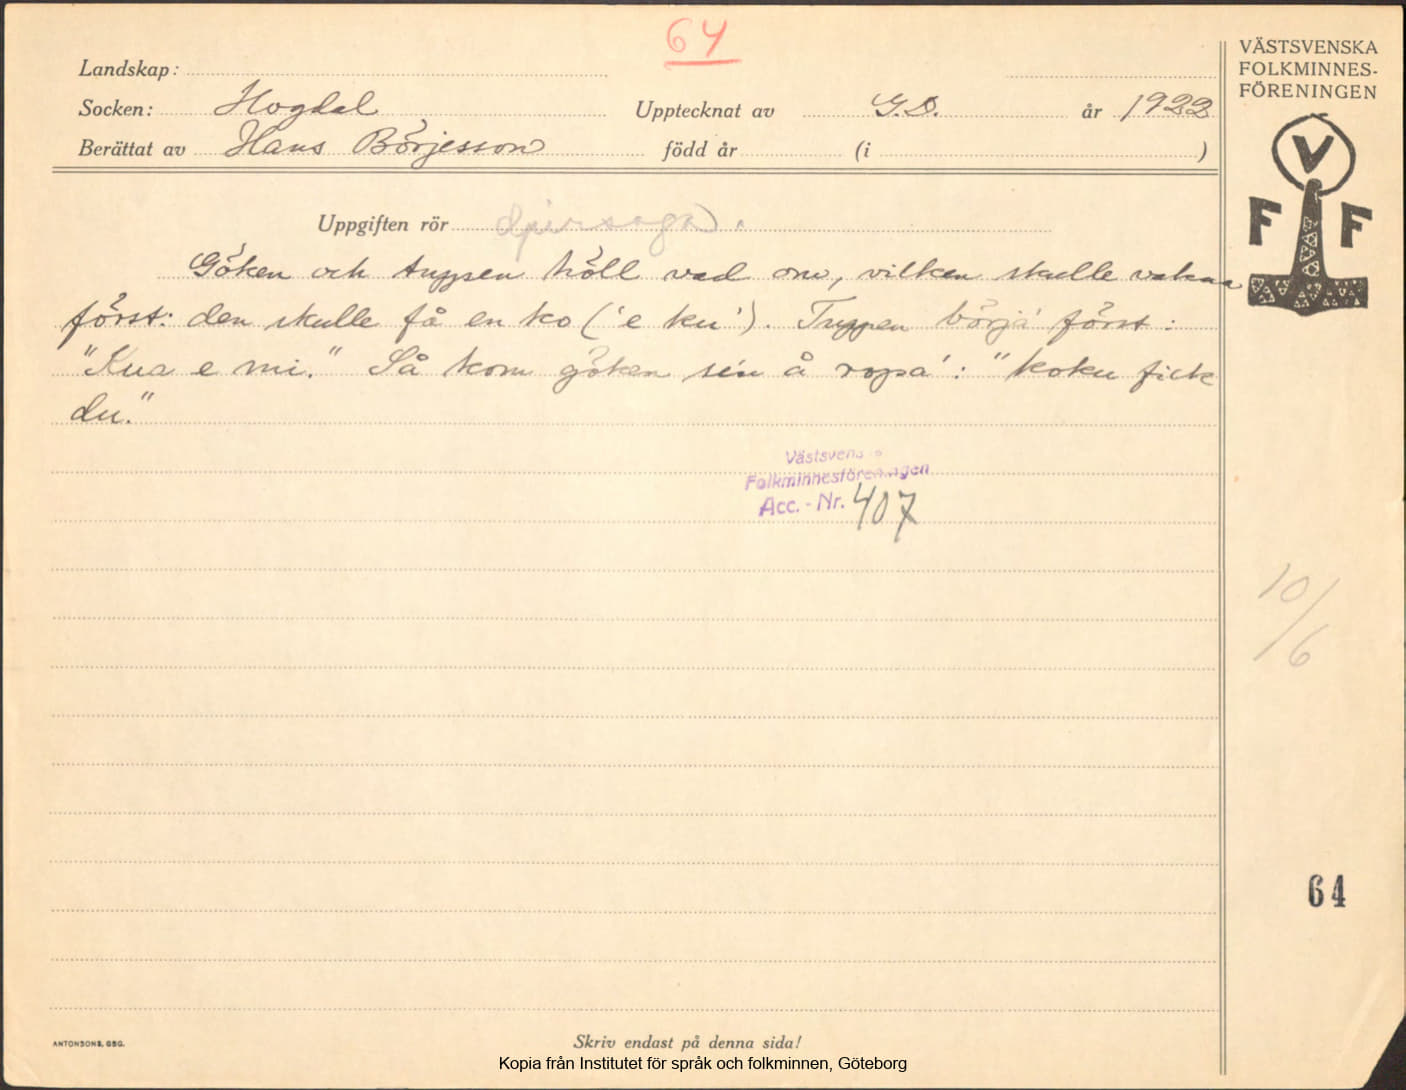 64
VÄSTSVENSKA
FOLKMINNES-
FÖRENINGEN
V
F F
Landskap:
Socken: Hogdal Upptecknat av G.D. år 1922
Berättat av Hans Börjesson född år (i )
Uppgiften rör djursaga.
Göken och tuppen höll vad om, vilken skulle vakna
först: den skulle få en ko ('e ku'). Tuppen börja' först:
"Kua e mi." Så kom göken sin å ropa': "koku fick
du."
Västsvens
Folkminnesföreningen
Acc.-Nr. 407
10/6
64
ANTONSONS, GBG.
Skriv endast på denna sida!
Kopia från Institutet för språk och folkminnen, Göteborg